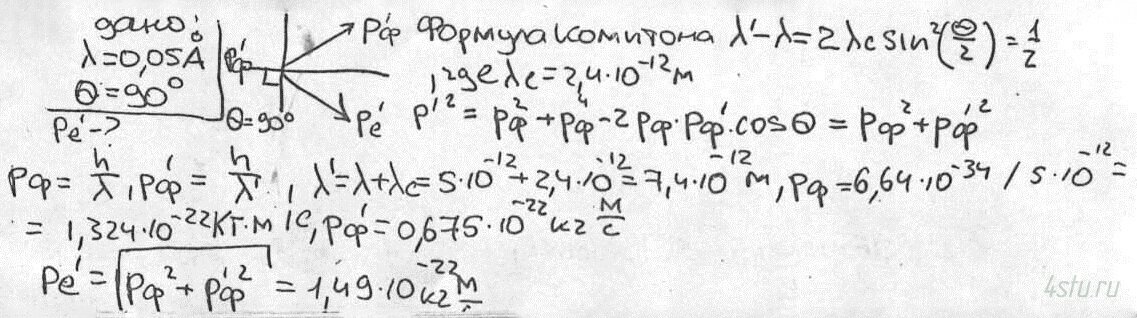 дано:
λ = 0,05А
Θ = 90°
Pe' - ?
Pф
Θ = 90°
P'ф
Pe'
Формула комптона λ' - λ = 2 λc sin²(Θ/2) = 1/2
, где λc = 2,4·10⁻¹² м
P'² = Pф² + Pф'² - 2 Pф·Pф'·cos Θ = Pф² + Pф'²
Pф = h/λ, Pф' = h/λ', λ' = λ + λc = 5·10⁻¹² + 2,4·10⁻¹² = 7,4·10⁻¹² м, Pф = 6,64·10⁻³⁴ / 5·10⁻¹² =
= 1,324·10⁻²² кг·м/с, Pф' = 0,675·10⁻²² кг м/с
Pe' = √(Pф² + Pф'²) = 1,49·10⁻²² кг м/с
4stu.ru